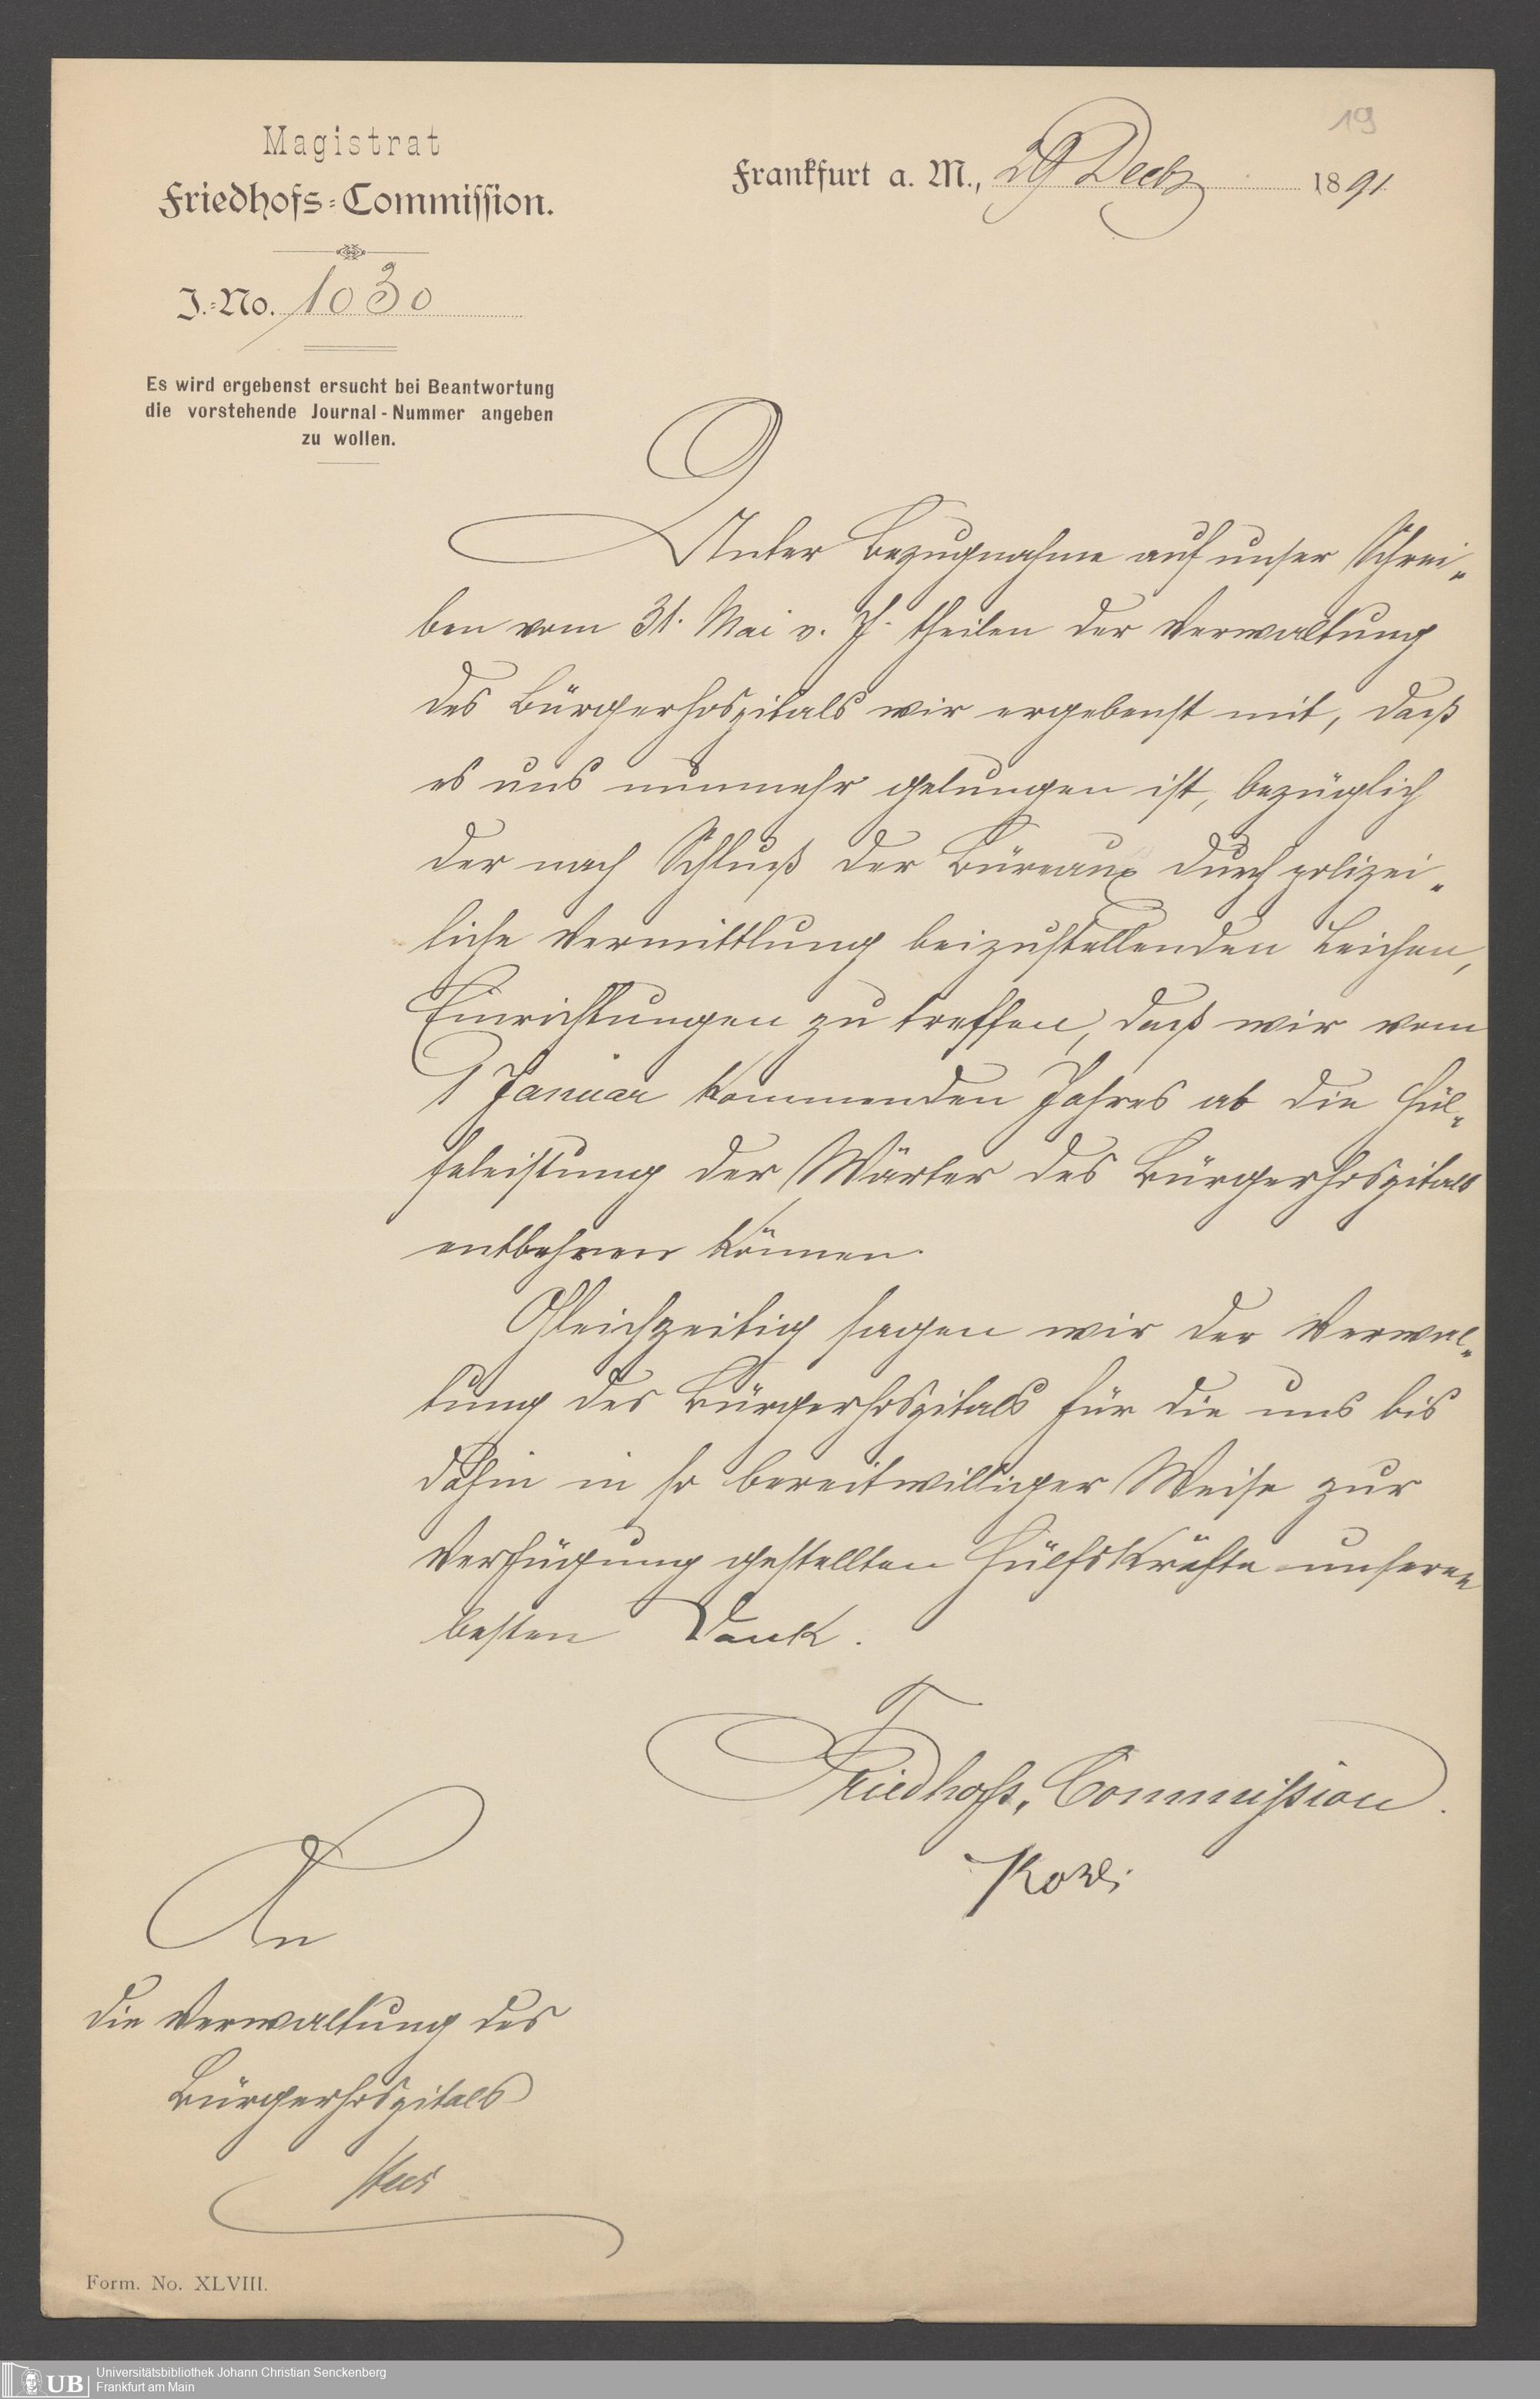 19
Magistrat
Friedhofs-Commission.
Frankfurt a. M., 29 Decbr 1891.
J.-No. 1030
Es wird ergebenst ersucht bei Beantwortung
die vorstehende Journal-Nummer angeben
zu wollen.
Unter Bezugnahme auf unser Schrei-
ben vom 31. Mai v. J. theilen der Verwaltung
des Bürgerhospitals wir ergebenst mit, daß
es uns nunmehr gelungen ist, bezüglich
der nach Schluß der Büreaux durch polizei-
liche Vermittlung beizustellenden Leichen,
Einrichtungen zu treffen, daß wir vom
1 Januar kommenden Jahres ab die Hül-
feleistung der Wärter des Bürgerhospitals
entbehren können.
Gleichzeitig sagen wir der Verwal-
tung des Bürgerhospitals für die uns bis
dahin in so bereitwilliger Weise zur
Verfügung gestellten Hülfskräfte unseren
besten Dank.
Friedhofs-Commission.
An
die Verwaltung des
Bürgerhospitals
hier
Form. No. XLVIII.
UB
Universitätsbibliothek Johann Christian Senckenberg
Frankfurt am Main